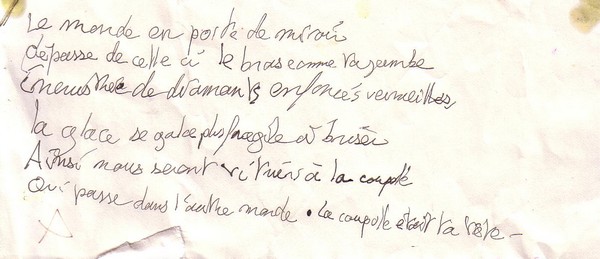 Le monde en porte de miroir
dépasse de celle ci le bras comme ta jambe
Incrustée de diamants enfoncés vermeilles
la glace se gal plus fragile à briser
Ainsi nous seront à la coupole
Qui passe dans l'autre monde. La coupole était ta tête -